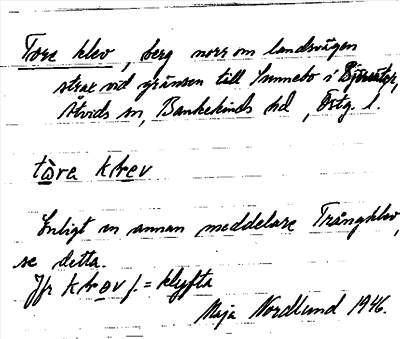 Tore klev, berg norr om landsvägen
strax vid gränsen till Sunnebo i Björsäter,
Åtvids sn, Bankekinds hd, Östg. l.
tòre klev
Enligt en annan meddelare Trångklev,
se detta.
Jfr klev f. = klyfta
Maja Nordlund 1946.